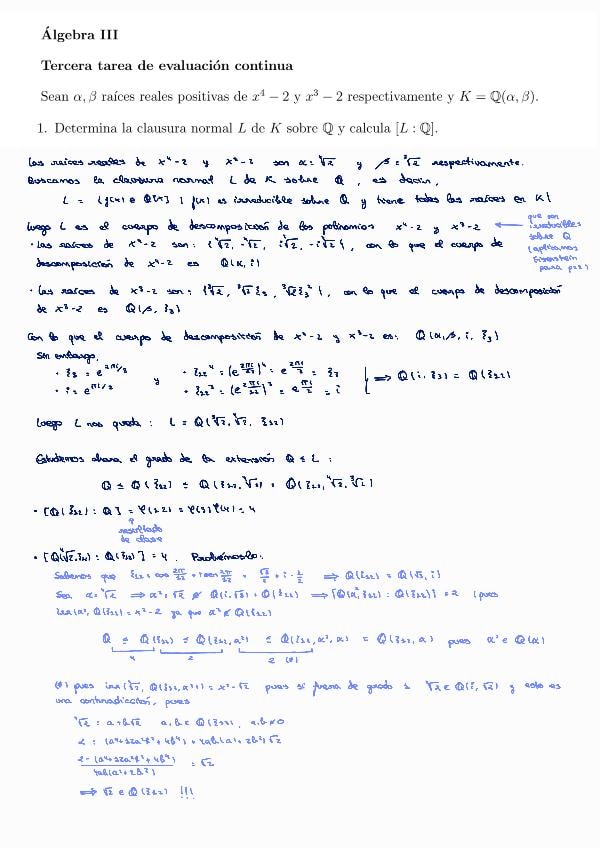 Álgebra III
Tercera tarea de evaluación continua
Sean α, β raíces reales positivas de x⁴ − 2 y x³ − 2 respectivamente y K = ℚ(α, β).
1. Determina la clausura normal L de K sobre ℚ y calcula [L : ℚ].
Las raíces reales de x⁴-2 y x³-2 son α = ⁴√2 y β = ³√2 respectivamente.
Buscamos la clausura normal L de K sobre ℚ, es decir,
L = { f(x) ∈ ℚ[x] | f(x) es irreducible sobre ℚ y tiene todas las raíces en K }
Luego L es el cuerpo de descomposición de los polinomios x⁴-2 y x³-2 ← que son irreducibles sobre ℚ (aplicamos Eisenstein para p=2)
· Las raíces de x⁴-2 son: {⁴√2, -⁴√2, i⁴√2, -i⁴√2}, con lo que el cuerpo de
descomposición de x⁴-2 es ℚ(α, i)
· Las raíces de x³-2 son: {³√2, ³√2 ξ₃, ³√2 ξ₃²}, con lo que el cuerpo de descomposición
de x³-2 es ℚ(β, ξ₃)
Con lo que el cuerpo de descomposición de x⁴-2 y x³-2 es: ℚ(α, β, i, ξ₃)
Sin embargo,
· ξ₃ = e^(2πi/3) y · ξ₁₂⁴ = (e^(2πi/12))⁴ = e^(2πi/3) = ξ₃
· i = e^(πi/2) · ξ₁₂³ = (e^(2πi/12))³ = e^(πi/2) = i ⟹ ℚ(i, ξ₃) = ℚ(ξ₁₂)
Luego L nos queda: L = ℚ(³√2, ⁴√2, ξ₁₂)
Estudiemos ahora el grado de la extensión ℚ ≤ L:
ℚ ≤ ℚ(ξ₁₂) ≤ ℚ(ξ₁₂, ⁴√2) ≤ ℚ(ξ₁₂, ⁴√2, ³√2)
· [ℚ(ξ₁₂) : ℚ] = φ(12) = φ(3)φ(4) = 4
↑
resultado
de clase
· [ℚ(⁴√2, ξ₁₂) : ℚ(ξ₁₂)] = 4. Probémoslo:
Sabemos que ξ₁₂ = cos 2π/12 + i sen 2π/12 = √3/2 + i · 1/2 ⟹ ℚ(ξ₁₂) = ℚ(√3, i)
Sea α = ⁴√2 ⟹ α² = √2 ∉ ℚ(i, √3) = ℚ(ξ₁₂) ⟹ [ℚ(α², ξ₁₂) : ℚ(ξ₁₂)] = 2 (pues
irr(α², ℚ(ξ₁₂)) = x²-2 ya que α² ∉ ℚ(ξ₁₂)
ℚ ≤ ℚ(ξ₁₂) ≤ ℚ(ξ₁₂, α²) ≤ ℚ(ξ₁₂, α², α) = ℚ(ξ₁₂, α) pues α² ∈ ℚ(α)
4 2 2 (*)
(*) pues irr(⁴√2, ℚ(ξ₁₂, α²)) = x²-√2 pues si fuera de grado 1 ⁴√2 ∈ ℚ(i, √2) y esto es
una contradicción, pues
⁴√2 = a+b√2 a, b ∈ ℚ(ξ₁₂), a, b ≠ 0
2 = (a⁴+12a²b²+4b⁴) + 4ab(a²+2b²)√2
2-(a⁴+12a²b²+4b⁴) / 4ab(a²+2b²) = √2
⟹ √2 ∈ ℚ(ξ₁₂) !!!